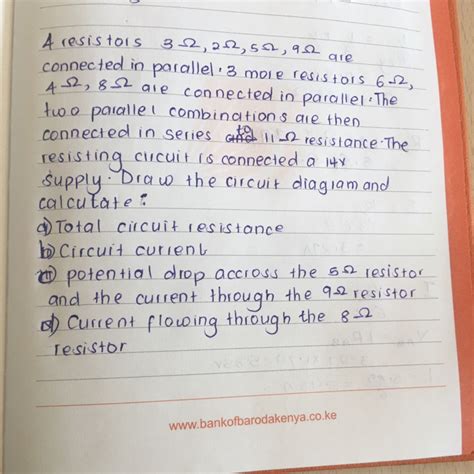 4 resistors 3Ω, 2Ω, 5Ω, 9Ω are
connected in parallel. 3 more resistors 6Ω,
4Ω, 8Ω are connected in parallel. The
two parallel combinations are then
connected in series to 11Ω resistance. The
resisting circuit is connected a 14V
supply. Draw the circuit diagram and
calculate?
a) Total circuit resistance
b) Circuit current
c) potential drop accross the 5Ω resistor
and the current through the 9Ω resistor
d) Current flowing through the 8Ω
resistor
www.bankofbarodakenya.co.ke